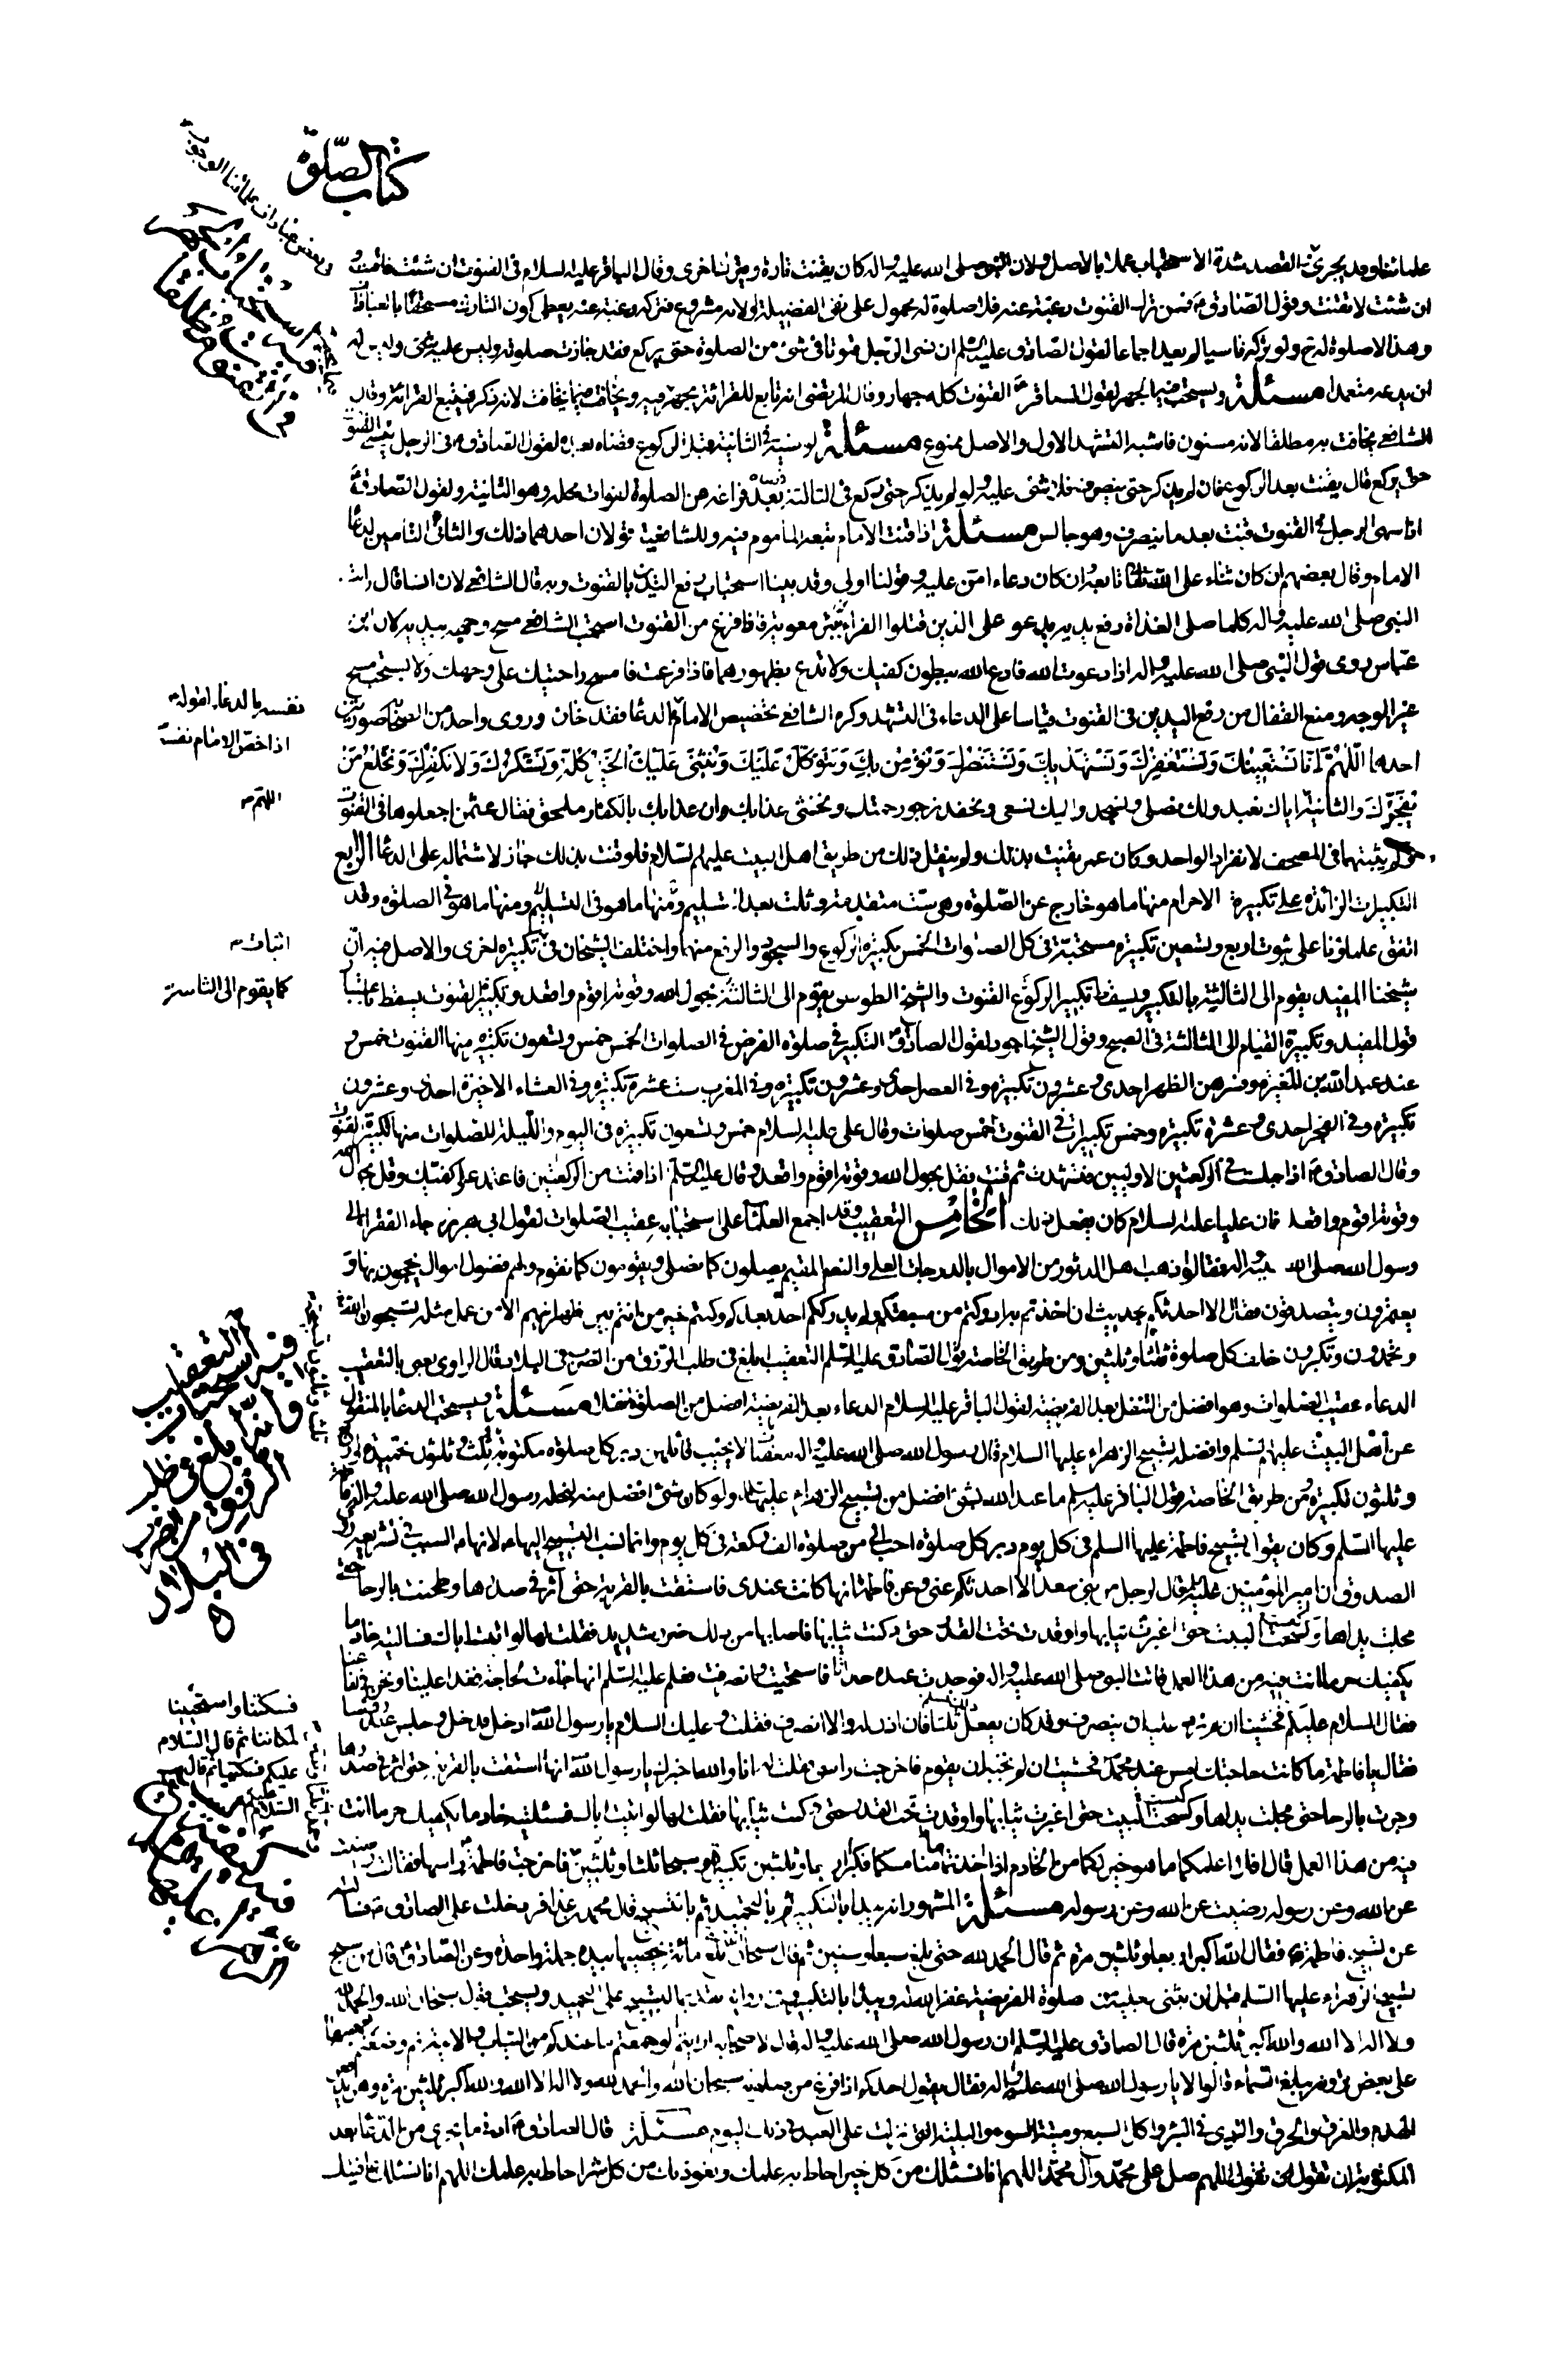 كتاب الصلوة
علمائنا وقد يجرى القصد شدة الاستحباب عملا بالاصل ولان النبي صلى الله عليه واله كان يقنت تارة ويترك اخرى وقال الباقر عليه السلام في القنوت ان شئت فاقنت و
ان شئت لا تقنت وقول الصادق من ترك القنوت رغبة عنه فلا صلوة له محمول على نفى الفضيلة او لانه مشروع فتركه رغبة عنه يعطى كون التارك مستحقا بالعبادة
وهذا لا صلوة له ولو تركه ناسيا لم يعد اجماعا لقول الصادق عليه السلم ان نسى الرجل قنوتا في شئ من الصلوة حتى يركع فقد جازت صلوته وليس عليه شئ وليس له
ان يدعه متعمدا مسئلة ويستحب فيه الجهر لقول الباقر القنوت كله جهار وقال المرتضى انه تابع للقرائة يجهر فيه ويخافت فيما يخافت لانه ذكر فيتبع القرائة وقال
الشافعي يخافت به مطلقا لانه مسنون فاشبه التشهد الاول والاصل ممنوع مسئلة لو نسيه في الثانية قبل الركوع قضاه بعده لقول الصادق في الرجل ينسى القنوت
حتى يركع قال يقنت بعد الركوع فان لم يذكر حتى ينصرف فلا شئ عليه ولو لم يذكر حتى ركع في الثالثة قضاه بعد فراغه من الصلوة لفوات محله وهو الثانية ولقول الصادق
اذا سهى الرجل في القنوت قنت بعد ما ينصرف وهو جالس مسئلة اذا قنت الامام تبعه المأموم فيه وللشافعية قولان احدهما ذلك والثاني التأمين لدعا
الامام وقال بعضهم ان كان ثناء على الله تعالى تابعه وان كان دعاء امن عليه وقولنا اولى وقد بينا استحباب رفع اليدين بالقنوت وبه قال الشافعي لان انسا قال رأيت
النبي صلى الله عليه واله كلما صلى الغداة رفع يديه يدعو على الذين قتلوا القراء ببئر معونة فاذا فرغ من القنوت استحب الشافعي مسح وجهه بيديه لان ابن
عباس روى قول النبي صلى الله عليه واله اذا دعوت الله فادع الله ببطون كفيك ولا تدع بظهورهما فاذا فرغت فامسح راحتيك على وجهك ولا يستحب مسح
غير الوجه ومنع القفال من رفع اليدين في القنوت قياسا على الدعاء في التشهد وكره الشافعي تخصيص الامام نفسه بالدعاء لقوله اذا خص الامام نفسه بالدعا فقد خان وروى واحد من الصحابة سورتين
احدهما اللهم انا نستعينك ونستغفرك ونستهديك ونستنصرك ونؤمن بك ونتوكل عليك ونثنى عليك الخير كله ونشكرك ولا نكفرك ونخلع من
يفجرك والثانية اياك نعبد ولك نصلى ونسجد واليك نسعى ونحفد نرجو رحمتك ونخشى عذابك ان عذابك بالكفار ملحق فقال عثمن اجعلوها في القنوت
ولم يثبتهما في المصحف لانفراد الواحد وكان عمر يقنت بذلك ولم ينقل ذلك من طريق اهل البيت عليهم السلام فلو قنت بذلك جاز لاشتماله على الدعا الرابع
التكبيرات الزائدة على تكبيرة الاحرام منها ما هو خارج عن الصلوة وهى ست متقدمة وثلث بعد التسليم ومنها ما هو في التسليم ومنها ما هو في الصلوة وقد
اتفق علماؤنا على ثبوت اربع وتسعين تكبيرة مستحبة في كل الصلوات الخمس تكبيرة الركوع والسجود والرفع منهما واختلف الشيخان في تكبيرة اخرى والاصل فيه ان
شيخنا المفيد يقوم الى الثالثة بالتكبير ويسقط تكبير الركوع القنوت والشيخ الطوسى يقوم الى الثالثة بحول الله وقوته اقوم واقعد وتكبير القنوت يسقط
قول المفيد وتكبيرة القيام الى الثالثة في الصبح وقول الشيخ اجود لقول الصادق التكبير في صلوة الفرض في الصلوات الخمس خمس وتسعون تكبيرة منها القنوت خمس و
عند عبد الله بن المغيرة وفسرهن الظهر احدى وعشرون تكبيرة وفي العصر احدى وعشرون تكبيرة وفي المغرب ست عشرة تكبيرة وفي العشاء الاخيرة احدى وعشرون
تكبيرة وفي الفجر احدى عشرة تكبيرة وخمس تكبيرات في القنوت خمس صلوات وقال على عليه السلام خمس وتسعون تكبيرة في اليوم والليلة للصلوات منها تكبيرة القنوت
وقال الصادق اذا جلست في الركعتين الاوليين فتشهدت ثم قمت فقل بحول الله وقوته اقوم واقعد وقال عليه السلم اذا قمت من الركعتين فاعتمد على كفيك وقل بحول الله
وقوته اقوم واقعد فان عليا عليه السلام كان يفعل ذلك الخامس التعقيب وقد اجمع العلماء على استحبابه عقيب الصلوات لقول ابى هريرة جاء الفقراء الى
رسول الله صلى الله عليه واله فقالوا ذهب اهل الدثور من الاموال بالدرجات العلى والنعيم المقيم يصلون كما نصلى ويصومون كما نصوم ولهم فضول اموال يحجون بها و
يعتمرون ويتصدقون فقال الا احدثكم بحديث ان اخذتم به ادركتم من سبقكم ولم يدرككم احد بعدكم وكنتم خير من انتم بين ظهرانيهم الا من عمل مثله تسبحون الله
وتحمدون وتكبرون خلف كل صلوة ثلثا وثلثين ومن طريق الخاصة قول الصادق عليه السلم التعقيب ابلغ في طلب الرزق من الضرب في البلاد فقال الراوى يعنى بالتعقيب
الدعاء عقيب الصلوات وهو افضل من التنفل بعد الفريضة لقول الباقر عليه السلام الدعاء بعد الفريضة افضل من الصلوة تنفلا مسئلة ويستحب الدعا بالمنقول
عن اهل البيت عليهم السلم وافضله تسبيح الزهراء عليها السلام قال رسول الله صلى الله عليه واله معقبات لا يخيب قائلهن دبر كل صلوة مكتوبة ثلث وثلثون تحميدة
وثلثون تكبيرة ومن طريق الخاصة قول الباقر عليه السلم ما عبد الله بشئ افضل من تسبيح الزهراء عليها السلام ولو كان شئ افضل منه لنحله رسول الله صلى الله عليه واله فاطمة
عليها السلم وكان يقول تسبيح فاطمة عليها السلم في كل يوم دبر كل صلوة احب الى من صلوة الف ركعة في كل يوم وانما نسب التسبيح اليها لانها السبب في تشريعه روى
الصدوق ان امير المؤمنين عليه السلم قال لرجل من بنى سعد الا احدثكم عنى وعن فاطمة انها كانت عندى فاستقت بالقربة حتى اثر في صدرها وطحنت بالرحا حتى
مجلت يداها وكسحت البيت حتى اغبرت ثيابها واوقدت تحت القدر حتى دكنت ثيابها فاصابها من ذلك ضر شديد فقلت لها لو اتيت اباك فسالتيه خادما
يكفيك حر ما انت فيه من هذا العمل فاتت النبي صلى الله عليه واله فوجدت عنده حداثا فاستحيت وانصرفت فعلم عليه السلم انها جاءت لحاجة فغدا علينا ونحن في لفاعنا
فقال السلام عليكم فخشينا ان لم نرد عليه ان ينصرف وقد كان يفعل ذلك يسلم ثلثا فان اذن له والا انصرف فقلت وعليك السلام يا رسول الله ادخل فدخل وجلس عند رؤسنا
فقال يا فاطمة ما كانت حاجتك امس عند محمد فخشيت ان لم نجبه ان يقوم فاخرجت راسى فقلت انا والله اخبرك يا رسول الله انها استقت بالقربة حتى اثر في صدرها
وجرت بالرحا حتى مجلت يداها وكسحت البيت حتى اغبرت ثيابها واوقدت تحت القدر حتى دكنت ثيابها فقلت لها لو اتيت اباك فسئلتيه خادما يكفيك حر ما انت
فيه من هذا العمل قال افلا اعلمكما ما هو خير لكما من الخادم اذا اخذتما منامكما فكبرا اربعا وثلثين تكبيرة وسبحا ثلثا وثلثين فاخرجت فاطمة راسها فقالت رضيت
عن الله وعن رسوله رضيت عن الله وعن رسوله مسئلة المشهور انه يبدا بالتكبير ثم بالتحميد ثم بالتسبيح قال محمد بن عذافر دخلت على الصادق فسأله
عن تسبيح فاطمة فقال الله اكبر اربعا وثلثين مرة ثم قال الحمد لله حتى بلغ سبعا وستين ثم قال سبحان الله حتى بلغ مائة يحصيها بيده جملة واحدة وعن الصادق قال من سبح
تسبيح الزهراء عليها السلم قبل ان يثنى رجليه من صلوة الفريضة غفر الله له ويبدا بالتكبير وفي رواية تقديم التسبيح على التحميد ويستحب قول سبحان الله والحمد لله
ولا اله الا الله والله اكبر ثلثين مرة قال الصادق عليه السلم ان رسول الله صلى الله عليه واله قال لاصحابه ارايتم لو جمعتم ما عندكم من الثياب والانية ثم وضعتم بعضها
على بعض ترونه يبلغ السماء قالوا لا يا رسول الله صلى الله عليه واله فقال يقول احدكم اذا فرغ من صلوته سبحان الله والحمد لله ولا اله الا الله والله اكبر ثلثين مرة وهن يدفعن
الهدم والغرق والحرق والتردى في البئر واكل السبع وميتة السوء والبلية التى نزلت على العبد في ذلك اليوم مسئلة قال الصادق ادنى ما يجزى من الدعا بعد
المكتوبة ان تقول اللهم صل على محمد وآل محمد اللهم انا نسئلك من كل خير احاط به علمك ونعوذ بك من كل شر احاط به علمك اللهم انا نسئلك عافيتك
نفسه بالدعاء لقوله
اذا خص الامام نفسه
اللهم
اثبات
كما يقوم الى الثالثة
التعقيب
فيه استحباب
وانه ابلغ في طلب
الرزق من الضرب
في البلاد
فسكتنا واستحيينا
لمكاننا ثم قال السلام
عليكم فسكتنا ثم قال
السلام عليكم